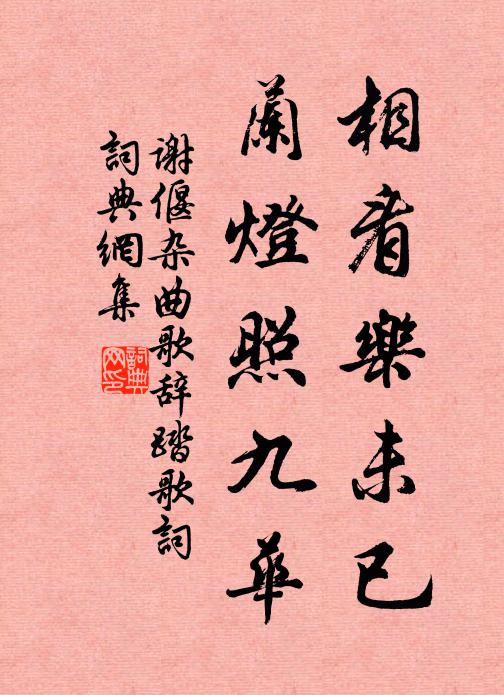 相看樂未已
蘭燈照九華
谢偃杂曲歌辞踏歌詞
詞典網集
詞典網印